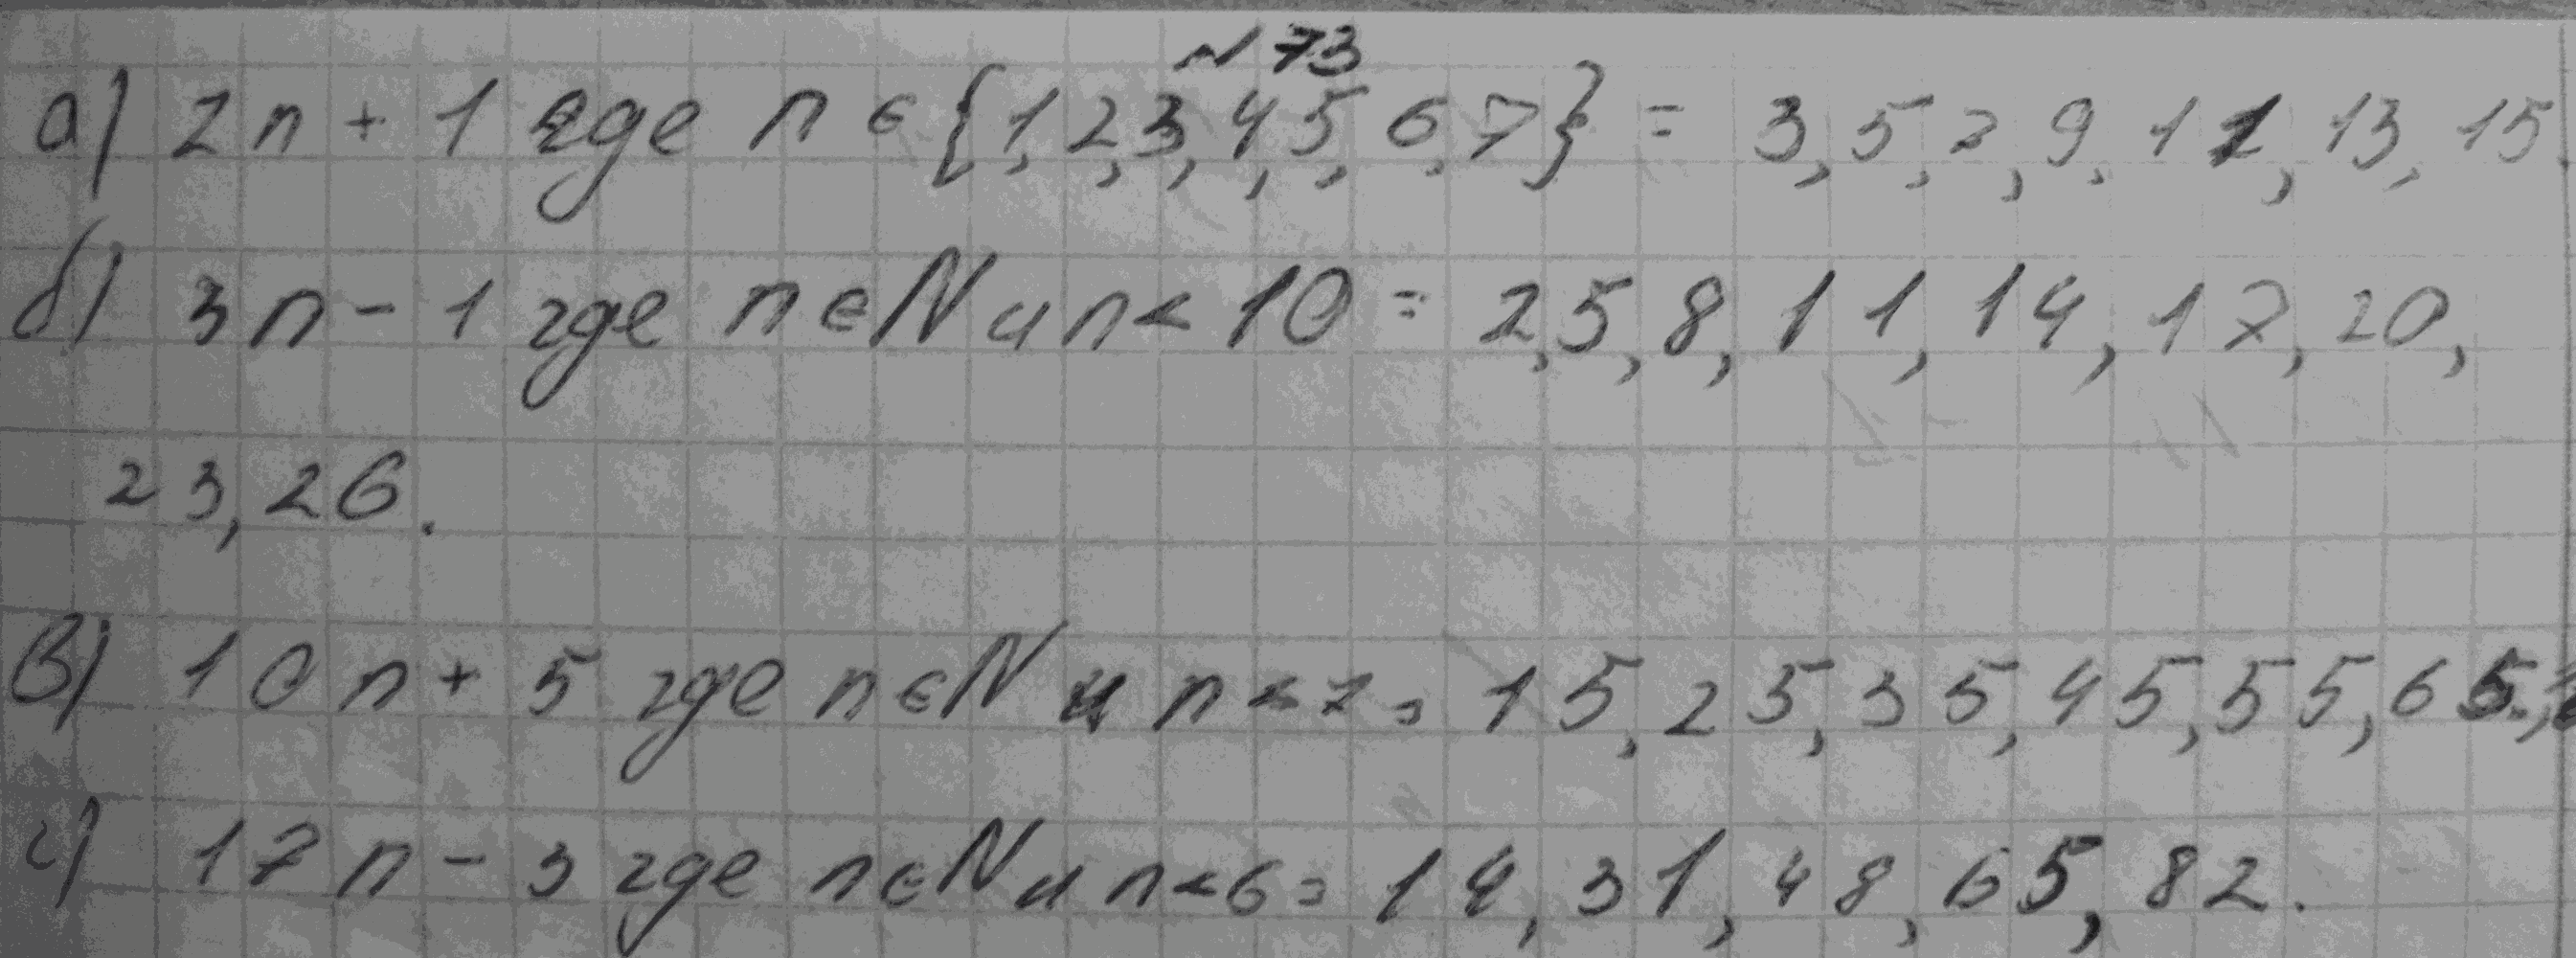 N 73
а) 2n + 1 где n ∈ {1, 2, 3, 4, 5, 6, 7} = 3, 5, 7, 9, 11, 13, 15.
б) 3n - 1 где n ∈ N и n < 10 = 2, 5, 8, 11, 14, 17, 20,
23, 26.
в) 10n + 5 где n ∈ N и n < 7 = 15, 25, 35, 45, 55, 65.
г) 17n - 3 где n ∈ N и n < 6 = 14, 31, 48, 65, 82.